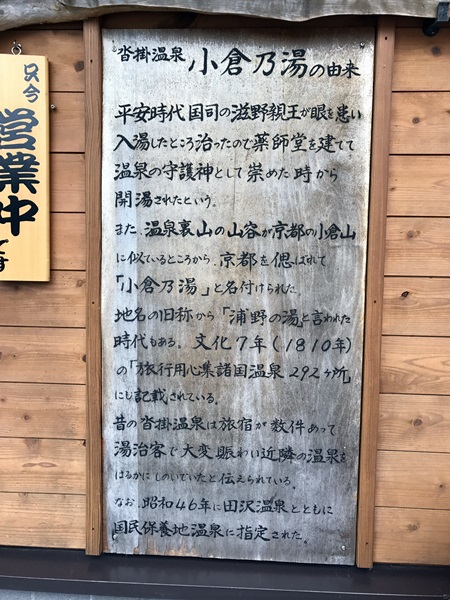 沓掛温泉 小倉乃湯の由来
平安時代国司の滋野親王が眼を患い
入湯したところ治ったので薬師堂を建てて
温泉の守護神として崇めた時から
開湯されたという。
また、温泉裏山の山容が京都の小倉山
に似ているところから、京都を偲ばれて
「小倉乃湯」と名付けられた
地名の旧称から「浦野の湯」と言われた
時代もある。文化7年(1810年)
の「旅行用心集諸国温泉292ヶ所」
にも記載されている。
昔の沓掛温泉は旅宿が数件あって
湯治客で大変賑わい近隣の温泉を
はるかにしのいでいたと伝えられている。
なお、昭和46年に田沢温泉とともに
国民保養地温泉に指定された。
只今
営業中
です